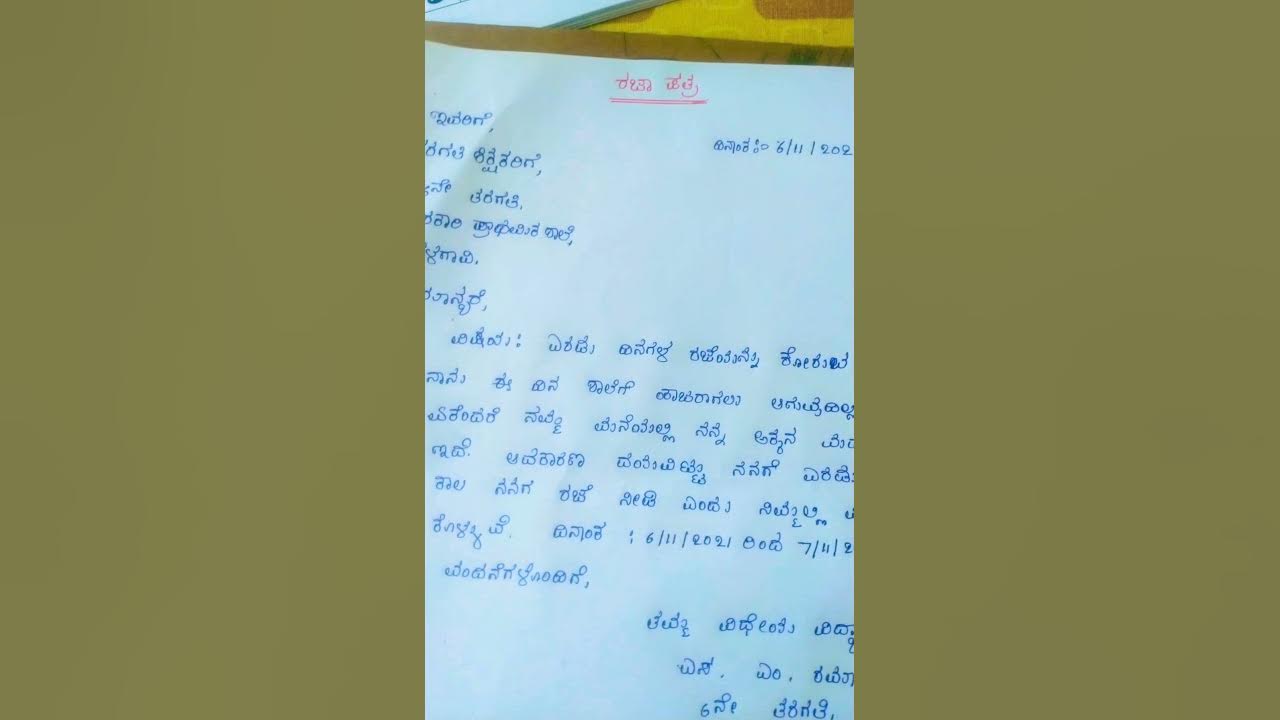 ರಜಾ ಪತ್ರ
ಇವರಿಗೆ,
ದಿನಾಂಕ:- 6/11/202
ರಗತಿ ಶಿಕ್ಷಕರಿಗೆ,
ನೇ ತರಗತಿ.
ರಕಾರಿ ಪ್ರಾಥಮಿಕ ಶಾಲೆ,
ಳಗಾವಿ.
ಮಾನ್ಯರೆ,
ವಿಷಯ: ಎರಡು ದಿನಗಳ ರಜೆಯನ್ನು ಕೋರುವ
ನಾನು ಈ ದಿನ ಶಾಲೆಗೆ ಹಾಜರಾಗಲು ಆಗುವುದಿಲ್ಲ
ಏಕೆಂದರೆ ನಮ್ಮ ಮನೆಯಲ್ಲಿ ನನ್ನ ಅಕ್ಕನ ಮದ
ಇದೆ. ಆದಕಾರಣ ದಯವಿಟ್ಟು ನನಗೆ ಎರಡು
ಕಾಲ ನನಗೆ ರಜೆ ನೀಡಿ ಎಂದು ನಿಮ್ಮಲ್ಲಿ
ಕೊಳ್ಳುವೆ. ದಿನಾಂಕ : 6/11/2021 ರಿಂದ 7/11/2
ವಂದನೆಗಳೊಂದಿಗೆ,
ತಮ್ಮ ವಿಧೇಯ ವಿದ್ಯಾ
ಎಸ್. ಎಂ.
6ನೇ ತರಗತಿ,